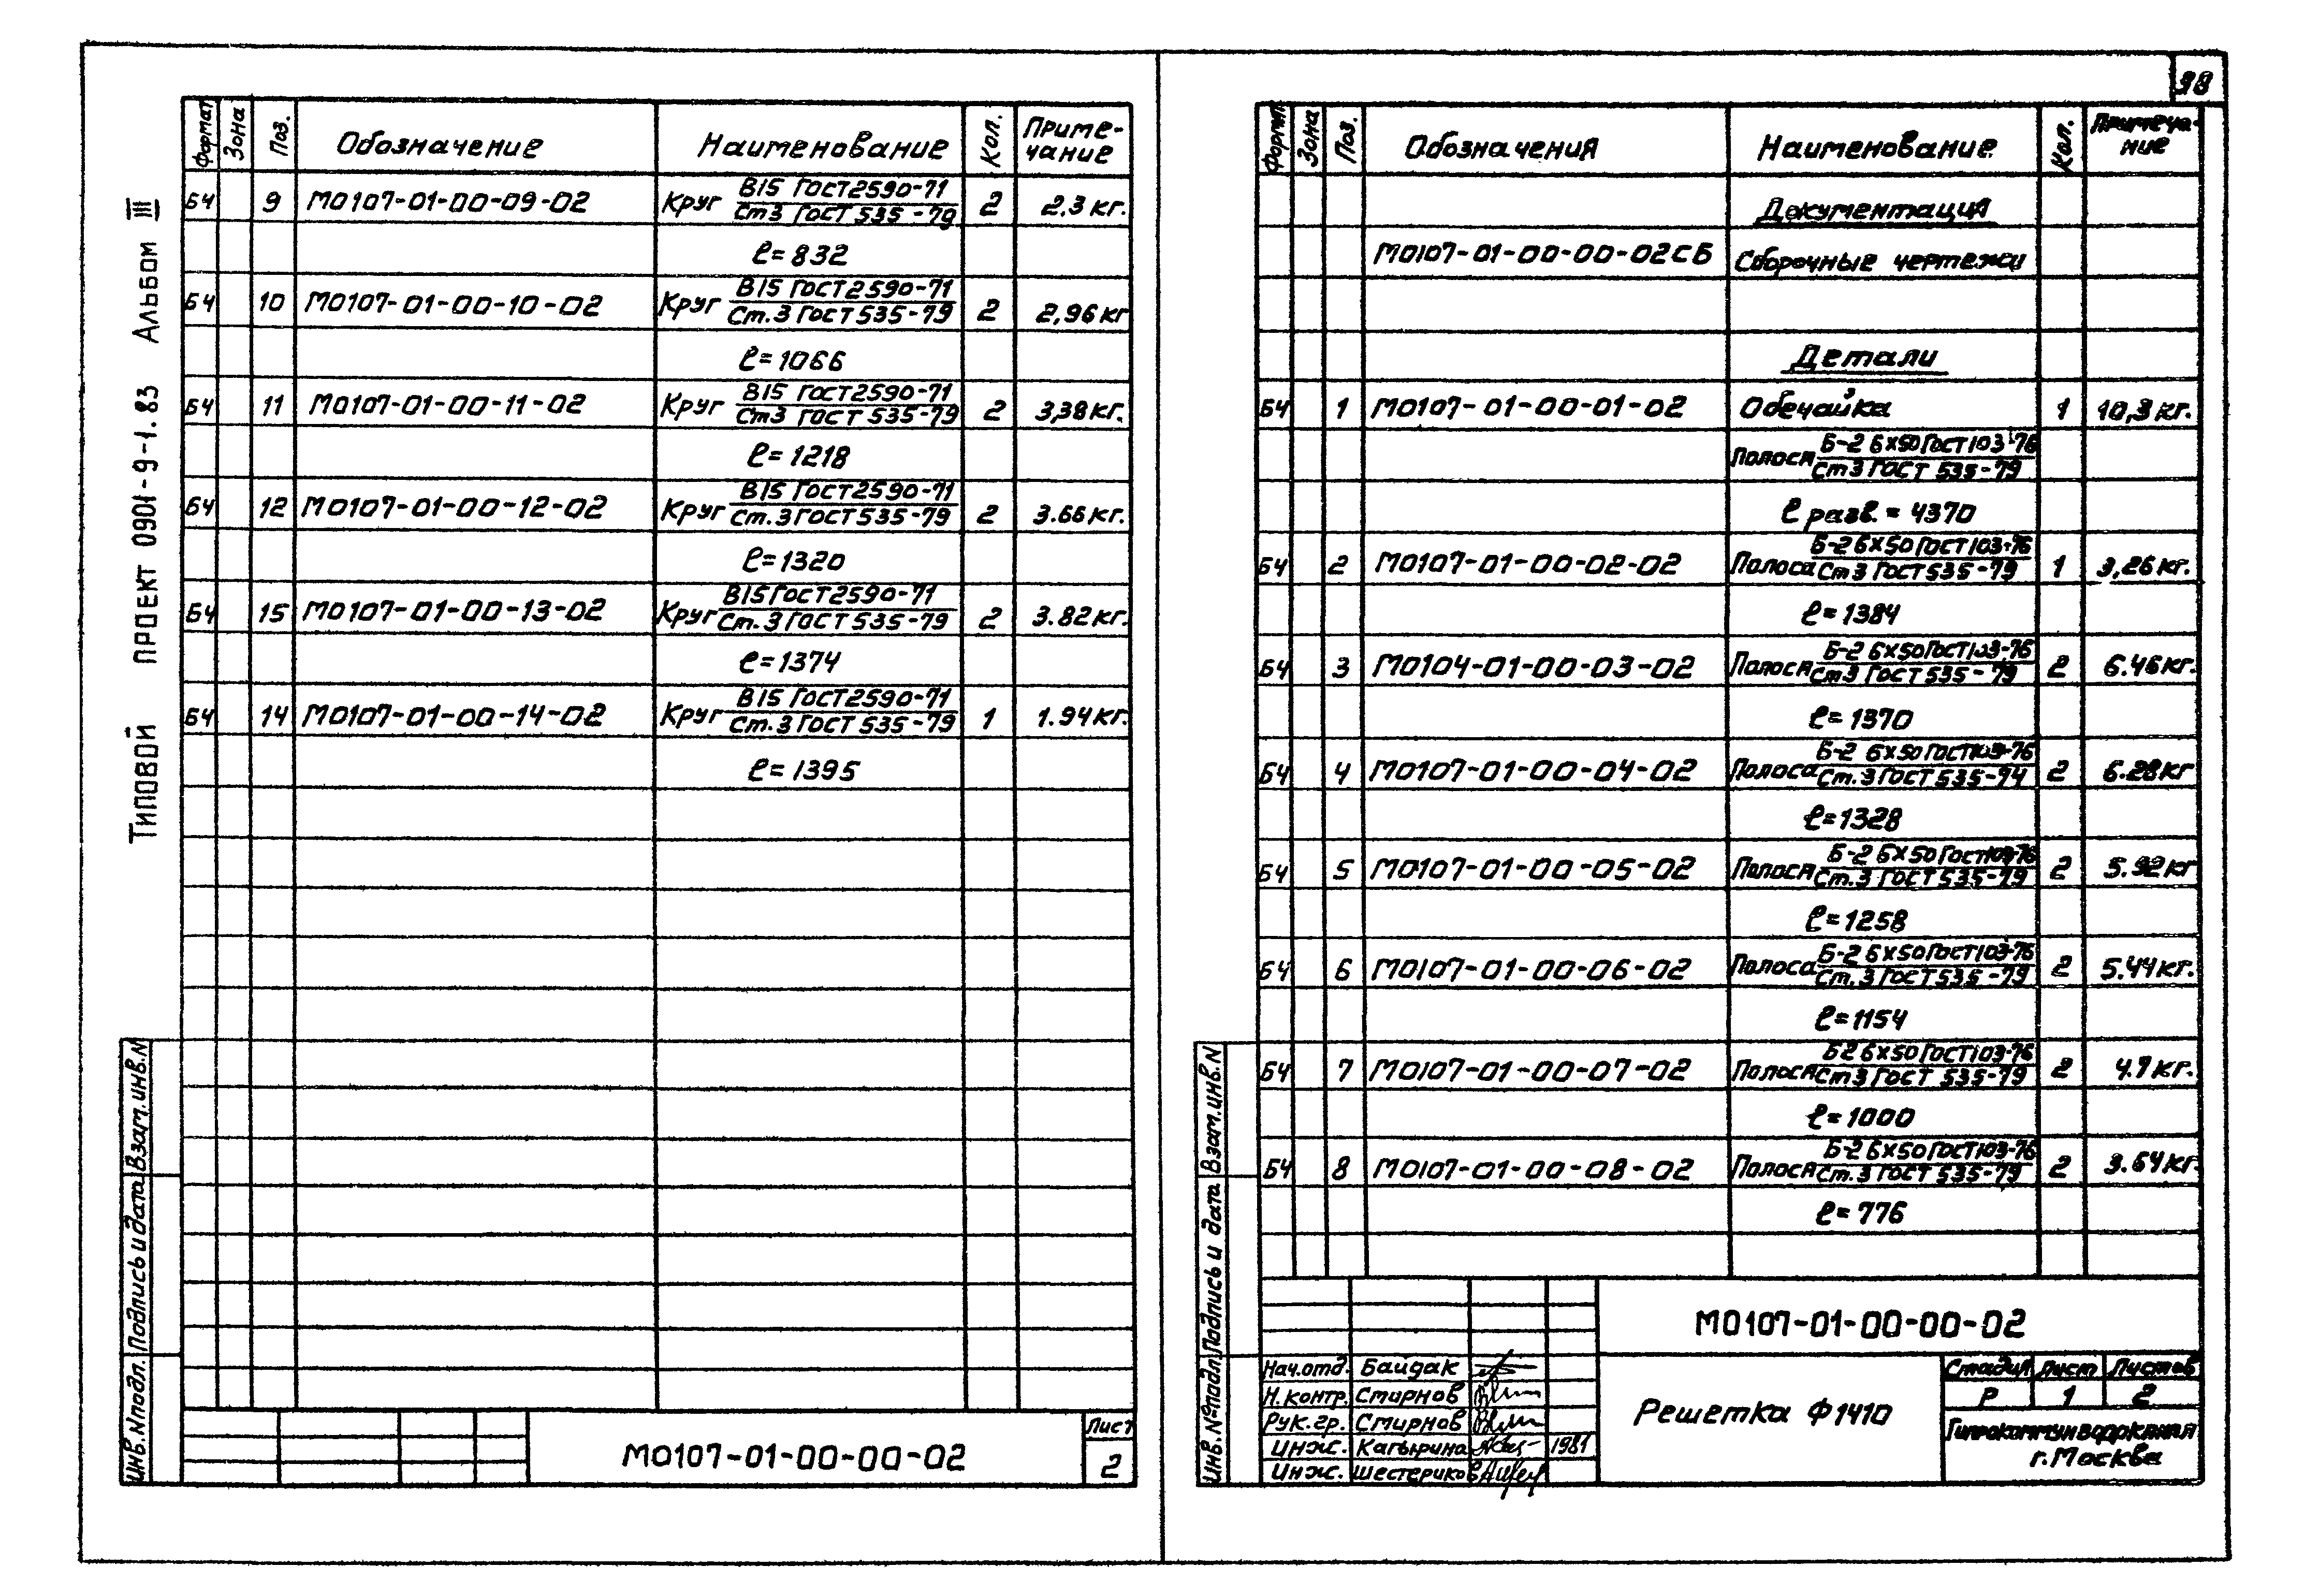 98
Типовой проект 0901-9-1.83 Альбом III
Формат Зона Поз. Обозначение Наименование Кол. Приме-
чание
Б4 9 М0107-01-00-09-02 Круг В15 ГОСТ2590-71 2 2,3 кг.
Ст3 ГОСТ 535-79
ℓ=832
Б4 10 М0107-01-00-10-02 Круг В15 ГОСТ2590-71 2 2,96кг
Ст.3 ГОСТ 535-79
ℓ=1066
Б4 11 М0107-01-00-11-02 Круг В15 ГОСТ2590-71 2 3,38кг.
Ст3 ГОСТ 535-79
ℓ=1218
Б4 12 М0107-01-00-12-02 Круг В15 ГОСТ2590-71 2 3.66кг.
Ст.3 ГОСТ 535-79
ℓ=1320
Б4 15 М0107-01-00-13-02 Круг В15 ГОСТ2590-71 2 3.82кг.
Ст.3 ГОСТ 535-79
ℓ=1374
Б4 14 М0107-01-00-14-02 Круг В15 ГОСТ2590-71 1 1.94кг.
Ст.3 ГОСТ 535-79
ℓ=1395
Инв.Nподл. Подпись и дата Взам.инв.N
М0107-01-00-00-02
Лист
2
Формат Зона Поз. Обозначения Наименование Кол. Примеча-
ние
Документация
М0107-01-00-00-02СБ Сборочные чертежи
Детали
Б4 1 М0107-01-00-01-02 Обечайка 1 10,3 кг.
Полоса Б-2 6х50 ГОСТ103-76
Ст3 ГОСТ 535-79
ℓ разв. = 4370
Б4 2 М0107-01-00-02-02 Полоса Б-2 6х50 ГОСТ103-76 1 3,26кг.
Ст3 ГОСТ535-79
ℓ=1384
Б4 3 М0104-01-00-03-02 Полоса Б-2 6х50 ГОСТ103-76 2 6.46кг.
Ст3 ГОСТ 535-79
ℓ=1370
Б4 4 М0107-01-00-04-02 Полоса Б-2 6х50 ГОСТ103-76 2 6.28кг
Ст.3 ГОСТ 535-74
ℓ=1328
Б4 5 М0107-01-00-05-02 Полоса Б-2 6х50 ГОСТ103-76 2 5.92кг
Ст.3 ГОСТ 535-79
ℓ=1258
Б4 6 М0107-01-00-06-02 Полоса Б-2 6х50 ГОСТ103-76 2 5.44кг.
Ст.3 ГОСТ 535-79
ℓ=1154
Б4 7 М0107-01-00-07-02 Полоса Б2 6х50 ГОСТ103-76 2 4.7кг.
Ст3 ГОСТ 535-79
ℓ=1000
Б4 8 М0107-01-00-08-02 Полоса Б-2 6х50 ГОСТ103-76 2 3.64кг.
Ст.3 ГОСТ 535-79
ℓ=776
Инв.Nºподл. Подпись и дата Взам.инв.N
М0107-01-00-00-02
Нач.отд. Байдак
Н.контр. Смирнов
Рук.гр. Смирнов
Инж. Кагырина 1981
Инж. Шестериков
Решетка Ф1410
Стадия Лист Листов
Р 1 2
Гипрокоммунводоканал
г.Москва